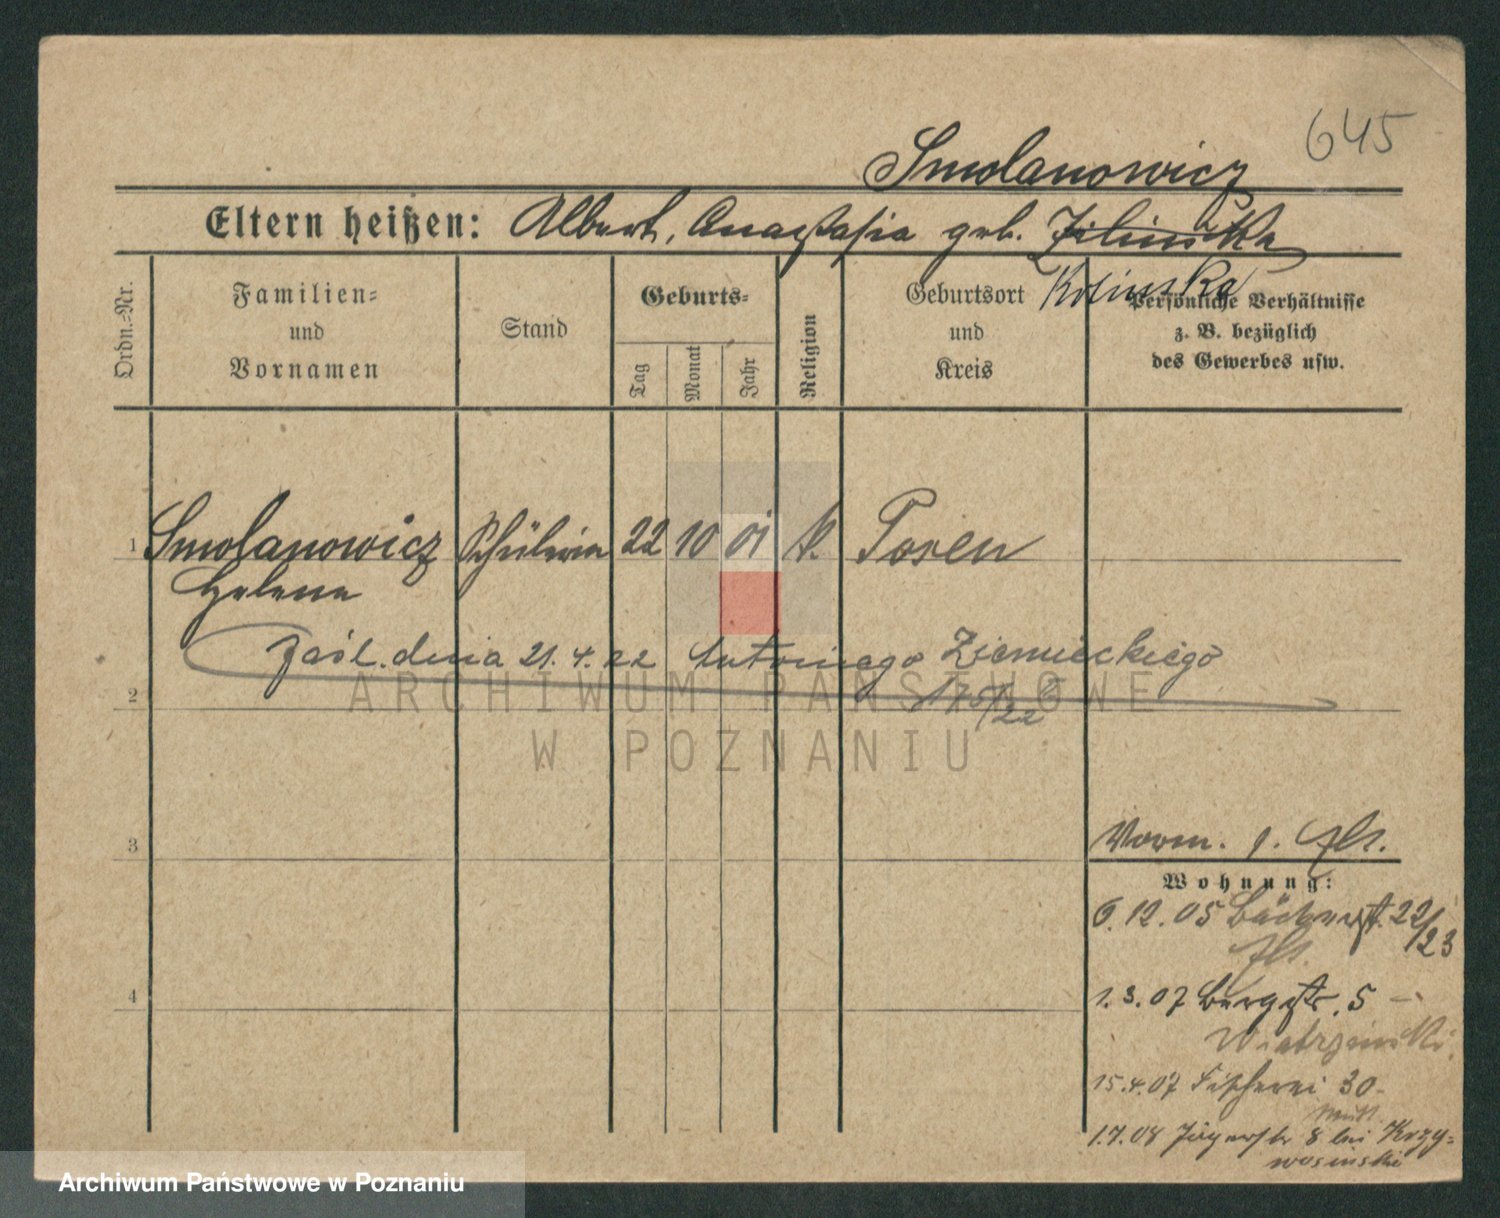 645
Smolanowicz
Eltern heißen: Albert, Anastasia geb. Zilinska
Kolinska
Ordn.-Nr.
Familien-
und
Vornamen
Stand
Geburts-
Tag
Monat
Jahr
Religion
Geburtsort
und
Kreis
Persönliche Verhältnisse
z. B. bezüglich
des Gewerbes usw.
1 Smolanowicz Schülerin 22 10 01 k. Posen
Helene
Zaśl. dnia 21.4.22 Antoniego Ziemieckiego
2 175/22
ARCHIWUM PAŃSTWOWE
W POZNANIU
3
Vorm.
Wohnung:
6.12.05 Bäckerst. 22/23
4
1.3.07 Bergstr. 5 –
15.4.07 Fischerei 30
1.7.08 Jägerstr 8 bei Krzy-
wosinski
Archiwum Państwowe w Poznaniu